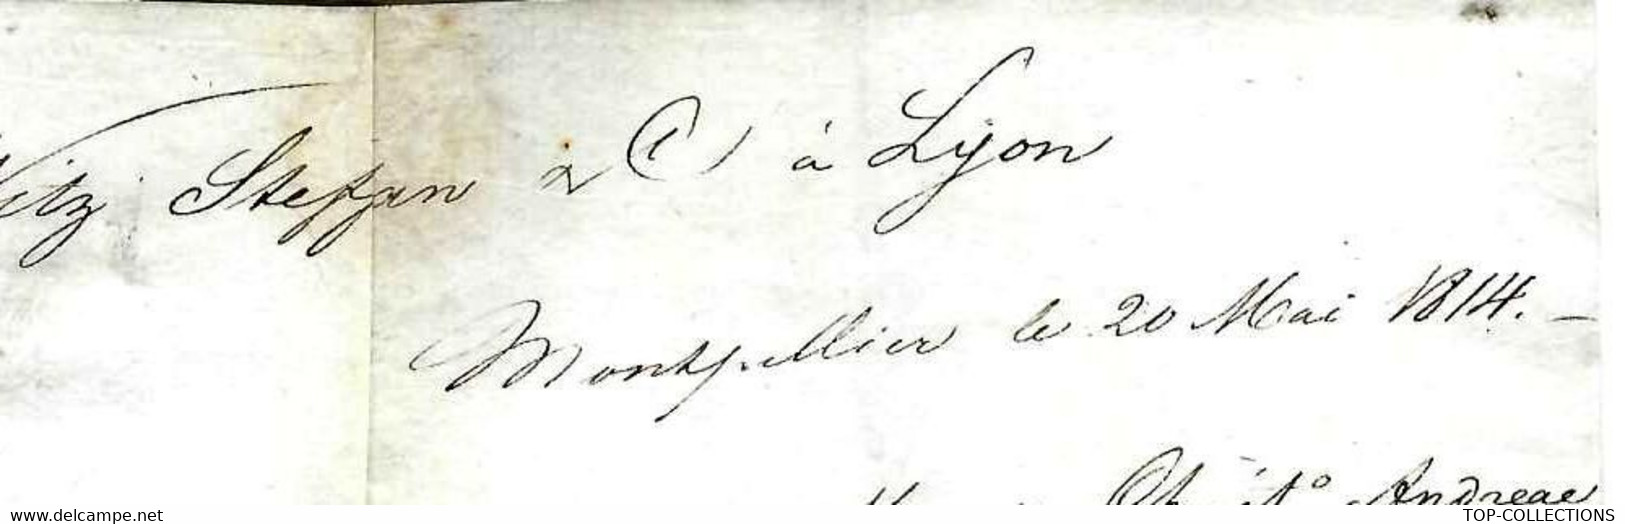 Witz Steffan & C. à Lyon
Montpellier le 20 Mai 1814. —
Andreae
www.delcampe.net
TOP-COLLECTIONS